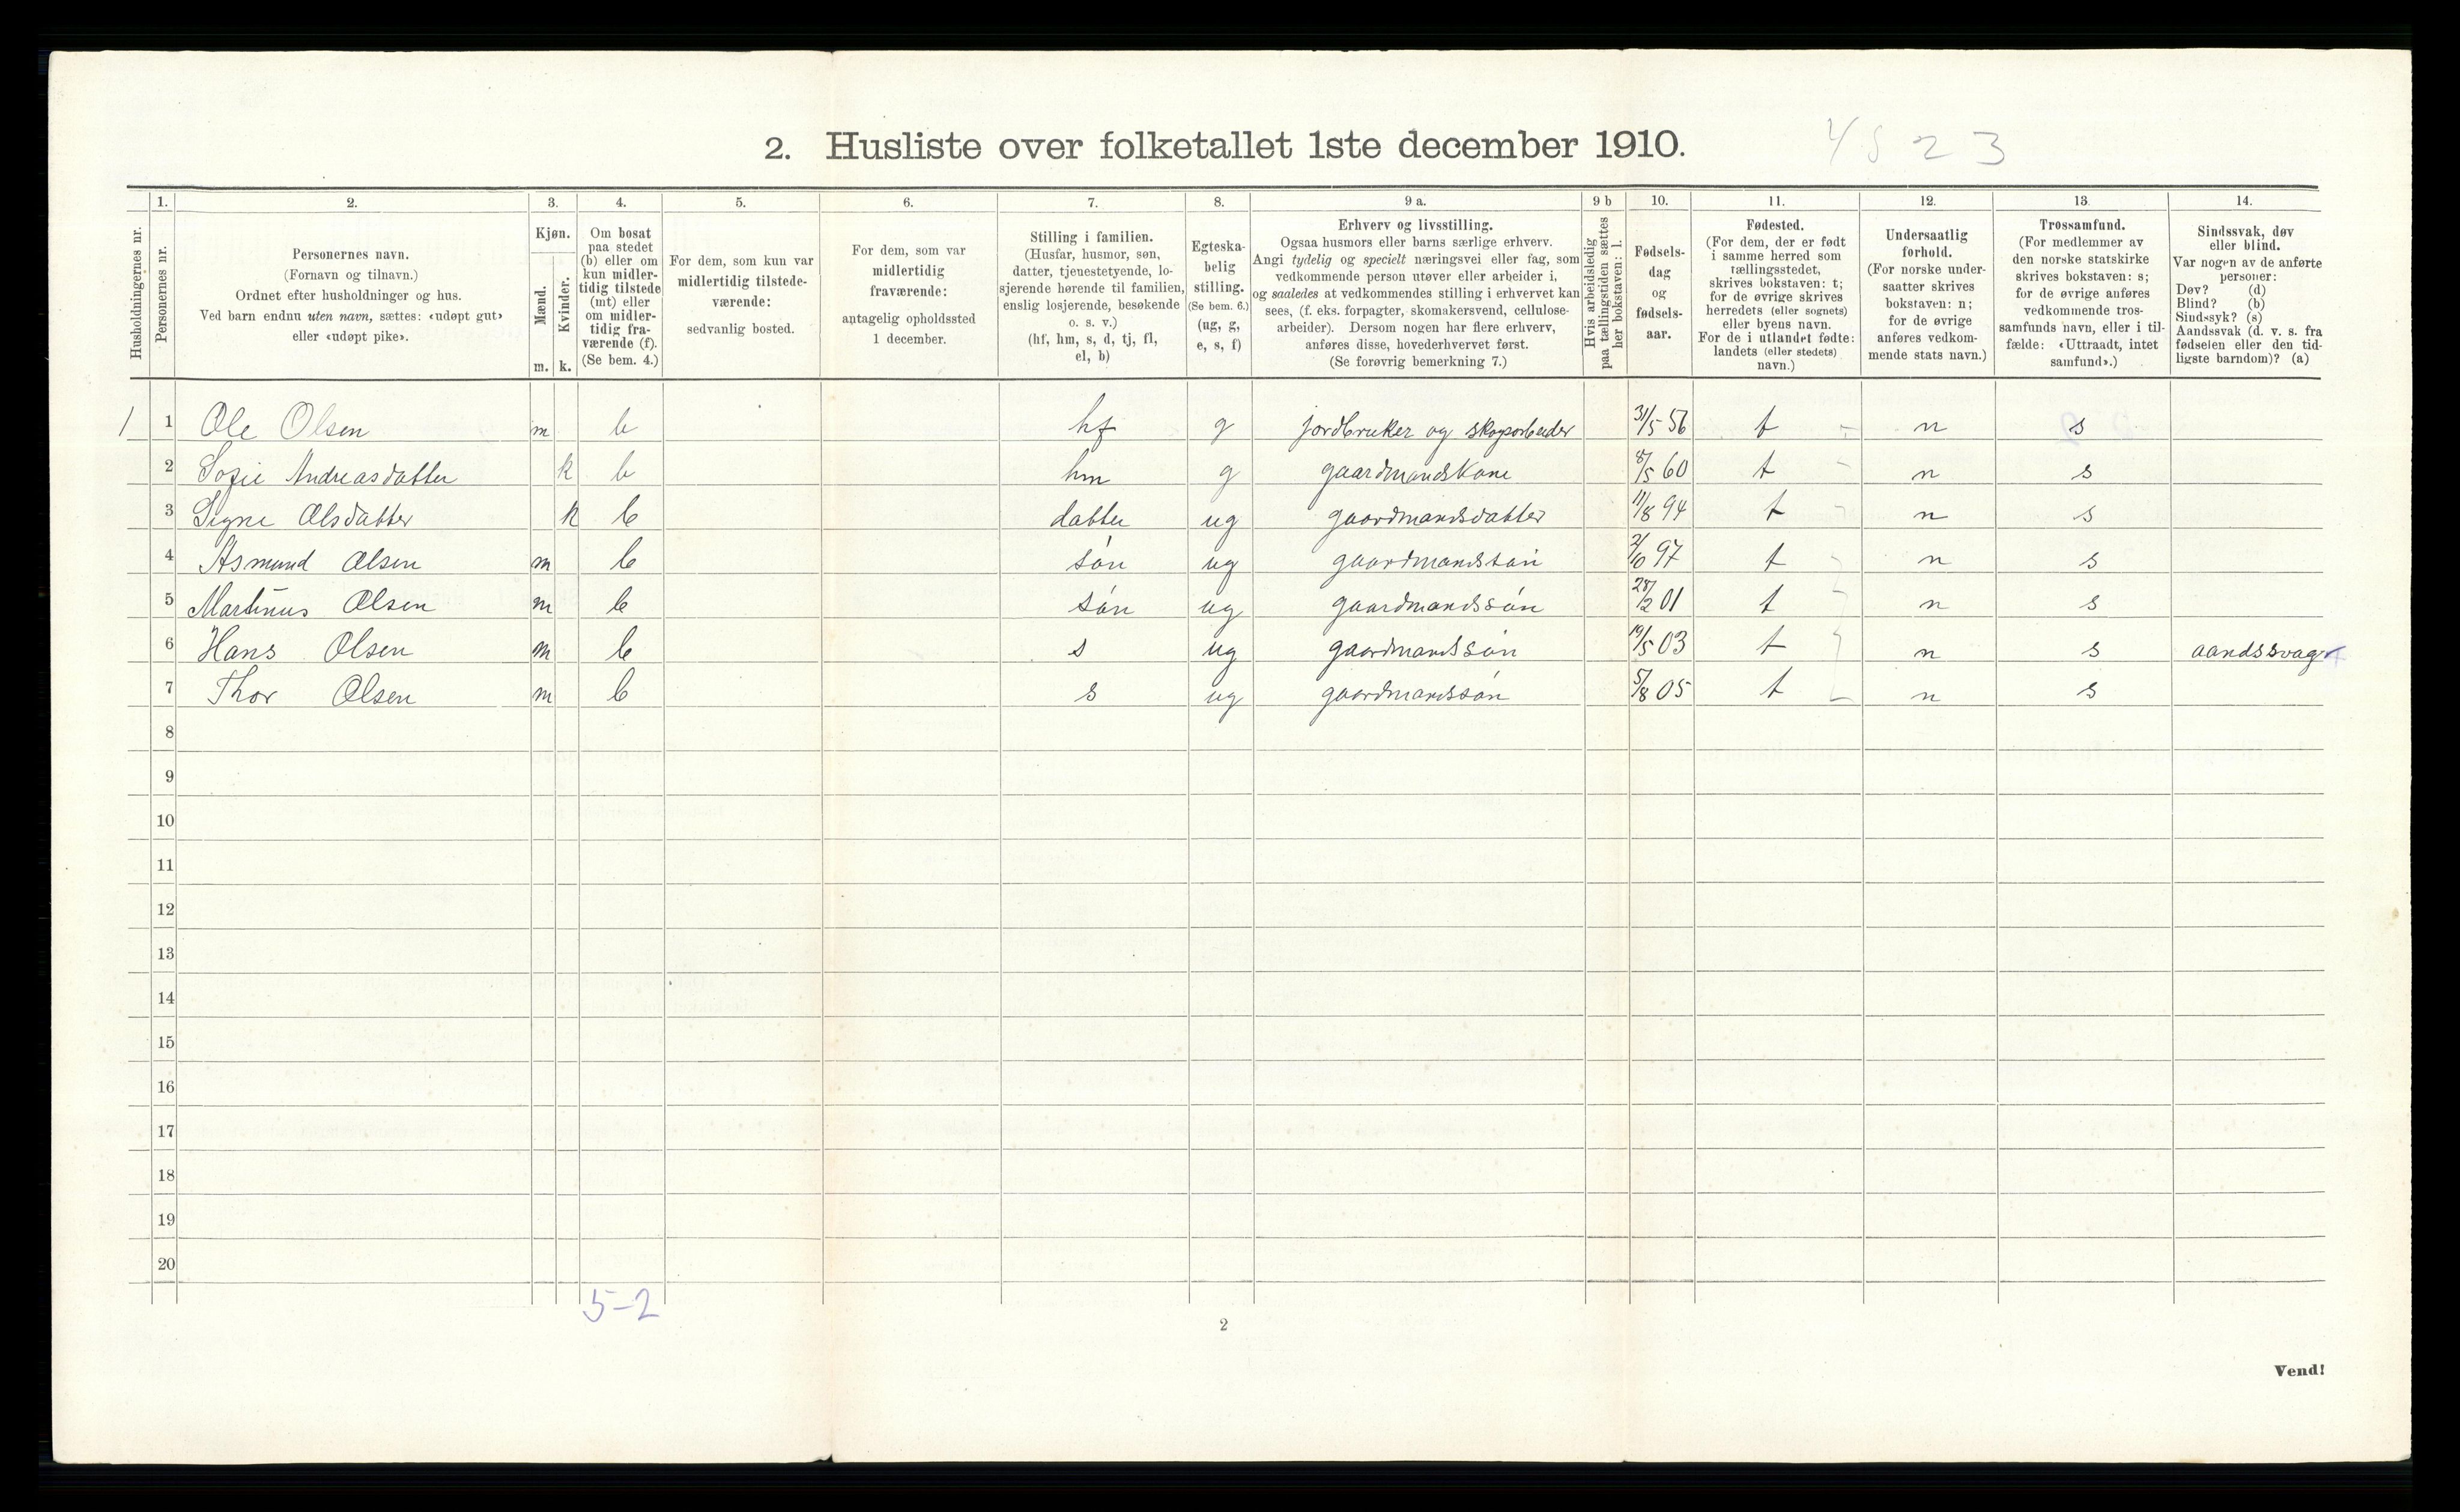 2. Husliste over folketallet 1ste december 1910.
4 5 2 3
Husholdningernes nr.
1.
Personernes nr.
2.
Personernes navn.
(Fornavn og tilnavn.)
Ordnet efter husholdninger og hus.
Ved barn endnu uten navn, sættes: «udøpt gut»
eller «udøpt pike».
3.
Kjøn.
Mænd.
Kvinder.
m. k.
4.
Om bosat
paa stedet
(b) eller om
kun midler-
tidig tilstede
(mt) eller
om midler-
tidig fra-
værende (f).
(Se bem. 4.)
5.
For dem, som kun var
midlertidig tilstede-
værende:
sedvanlig bosted.
6.
For dem, som var
midlertidig
fraværende:
antagelig opholdssted
1 december.
7.
Stilling i familien.
(Husfar, husmor, søn,
datter, tjenestetyende, lo-
sjerende hørende til familien,
enslig losjerende, besøkende
o. s. v.)
(hf, hm, s, d, tj, fl,
el, b)
8.
Egteska-
belig
stilling.
(Se bem. 6.)
(ug, g,
e, s, f)
9 a.
Erhverv og livsstilling.
Ogsaa husmors eller barns særlige erhverv.
Angi tydelig og specielt næringsvei eller fag, som
vedkommende person utøver eller arbeider i,
og saaledes at vedkommendes stilling i erhvervet kan
sees, (f. eks. forpagter, skomakersvend, cellulose-
arbeider). Dersom nogen har flere erhverv,
anføres disse, hovederhvervet først.
(Se forøvrig bemerkning 7.)
9 b
Hvis arbeidsledig
paa tællingstiden sættes
her bokstaven: l.
10.
Fødsels-
dag
og
fødsels-
aar.
11.
Fødested.
(For dem, der er født
i samme herred som
tællingsstedet,
skrives bokstaven: t;
for de øvrige skrives
herredets (eller sognets)
eller byens navn.
For de i utlandet fødte:
landets (eller stedets)
navn.)
12.
Undersaatlig
forhold.
(For norske under-
saatter skrives
bokstaven: n;
for de øvrige
anføres vedkom-
mende stats navn.)
13.
Trossamfund.
(For medlemmer av
den norske statskirke
skrives bokstaven: s;
for de øvrige anføres
vedkommende tros-
samfunds navn, eller i til-
fælde: «Uttraadt, intet
samfund».)
14.
Sindssvak, døv
eller blind.
Var nogen av de anførte
personer:
Døv? (d)
Blind? (b)
Sindssyk? (s)
Aandssvak (d. v. s. fra
fødselen eller den tid-
ligste barndom)? (a)
1 1 Ole Olsen m b hf g jordbruker og skogarbeider 31/5 56 t n s
2 Sofie Andreasdatter k b hm g gaardmandskone 8/5 60 t n s
3 Signe Olsdatter k b datter ug gaardmandsdatter 11/8 94 t n s
4 Asmund Olsen m b søn ug gaardmandssøn 2/10 97 t n s
5 Martinus Olsen m b søn ug gaardmandssøn 28/2 01 t n s
6 Hans Olsen m b s ug gaardmandssøn 19/5 03 t n s aandssvag
7 Thor Olsen m b s ug gaardmandssøn 5/8 05 t n s
8
9
10
11
12
13
14
15
16
17
18
19
20
5-2
2
Vend!